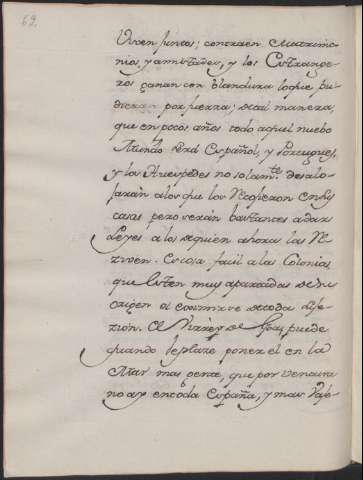 69.
Viven juntos; contraen Matrimo-
nios, y amistades, y los Estrange-
ros ganan con blandura lo que pu-
dieran por fuerza; de tal manera,
que en pocos años todo aquel nuebo
Mundo será Español, y Portugues,
y los Huespedes no solam.te desalo-
jarán a los que los recogieron en sus
casas pero verán bastantes a dar
Leyes a los de quien ahora las Re-
civen. Es cosa facil a las Colonias
que esten muy apartadas de su
origen el eximirse de toda
El Virrey de Goa, puede
quando le plaze poner el en la
Mar mas gente, que por ventura
no ay en toda España, y mas